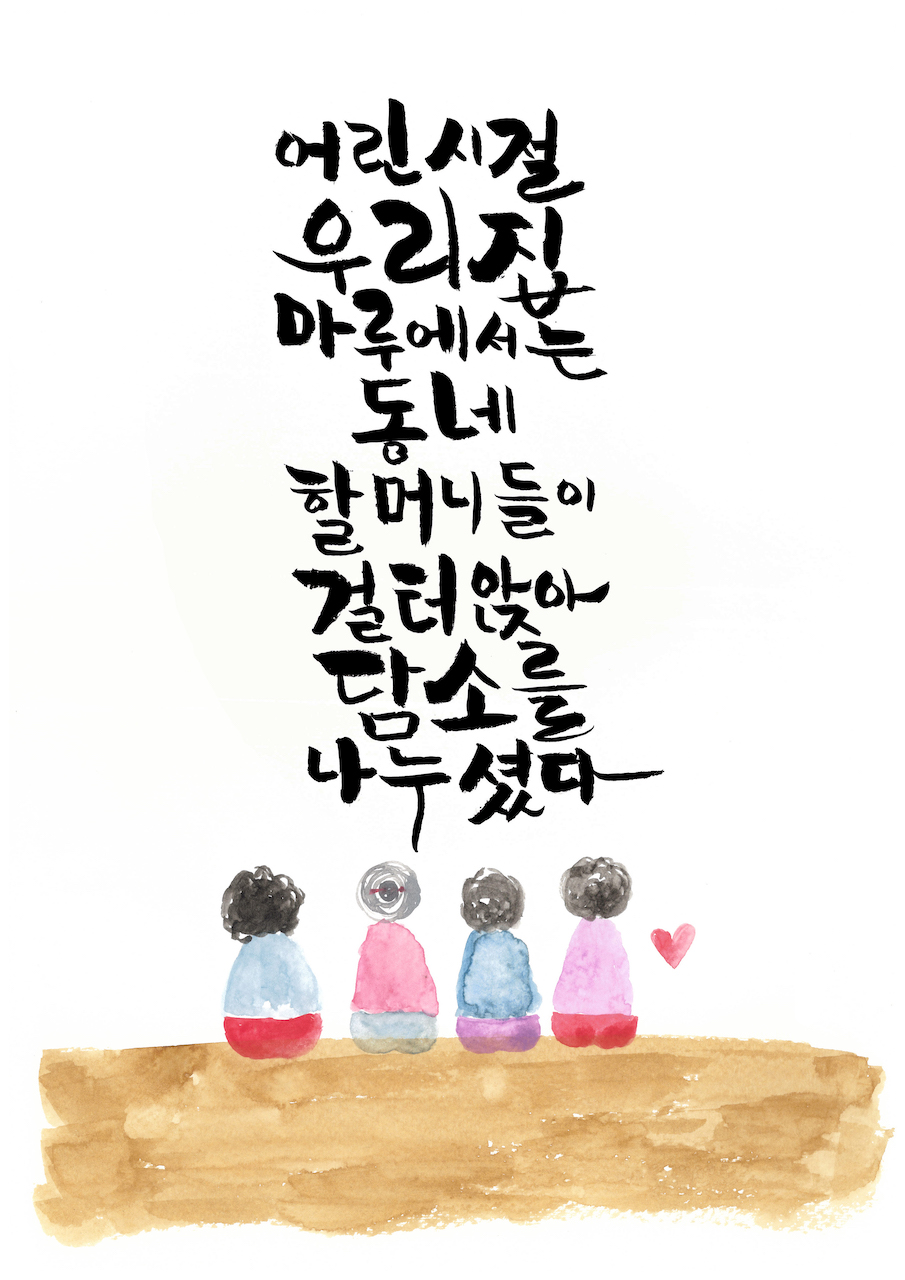 어린시절
우리집
마루에서는
동네
할머니들이
걸터앉아
담소를
나누셨다